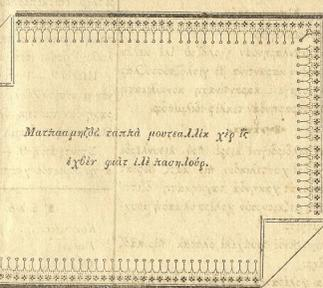 Ματπααμηζδὲ ταππὰ μουτεαλλὶκ χὲρ ἲς
ἐχβὲν φιὰτ ἰλὲ πασηλούρ.